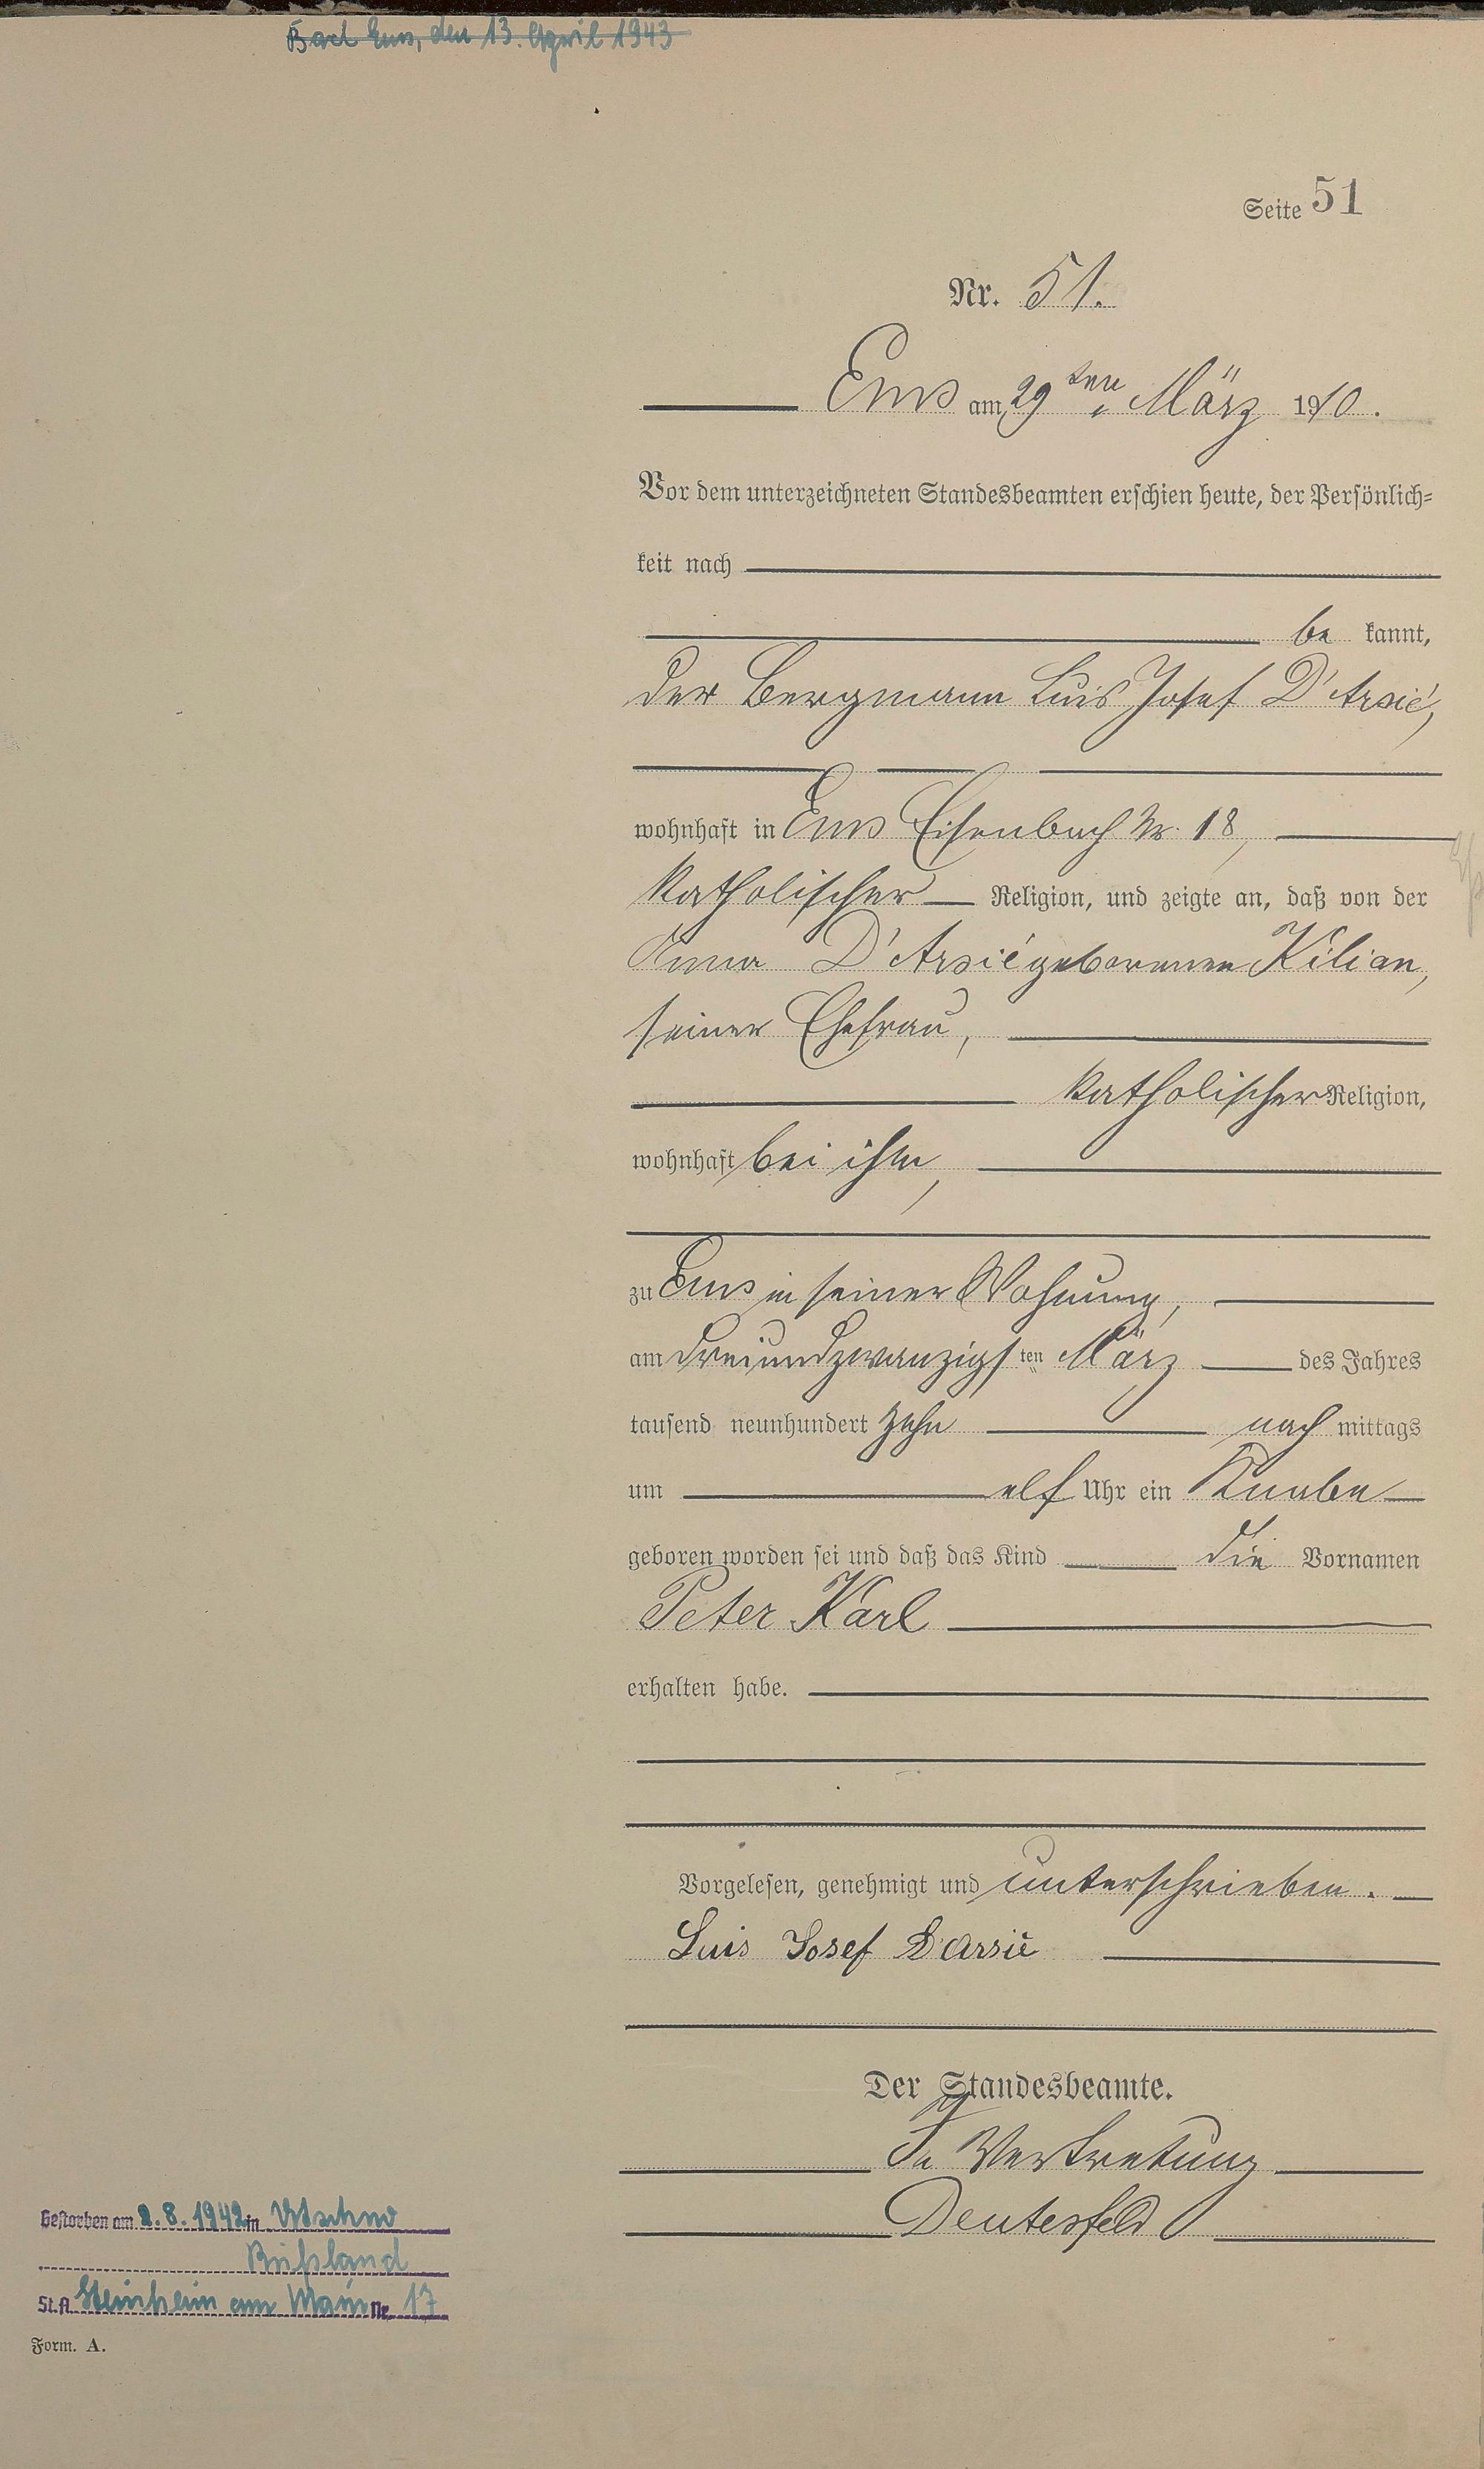 Bad Ems, den 13. April 1943
Seite 51
Nr. 51.
Ems am 29ten März 1910.
Vor dem unterzeichneten Standesbeamten erschien heute, der Persönlich-
keit nach
be kannt,
der Bergmann Luis Josef D'Arsié,
wohnhaft in Ems Eisenbach Nr. 18,
katholischer Religion, und zeigte an, daß von der
Anna D'Arsié geborenen Kilian,
seiner Ehefrau,
katholischer Religion,
wohnhaft bei ihm,
zu Ems in seiner Wohnung,
am dreiundzwanzigsten März des Jahres
tausend neunhundert zehn nach mittags
um elf Uhr ein Knabe
geboren worden sei und daß das Kind die Vornamen
Peter Karl
erhalten habe.
Vorgelesen, genehmigt und unterschrieben.
Luis Josef D'Arsié
Der Standesbeamte.
In Vertretung
Deutesfeld
Gestorben am 2.8.1942 in
Rußland
St.A. Steinheim am Main Nr. 17
Form. A.